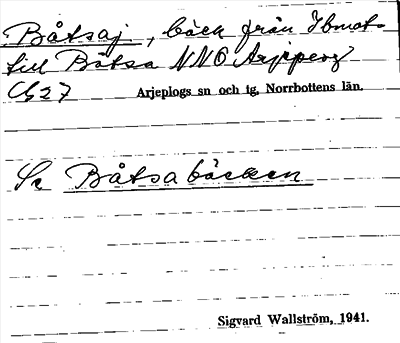 Båtsaj, bäck från Ibmat-
till Båtsa NNO Arjeperg
C627 Arjeplogs sn och tg, Norrbottens län.
Se Båtsabäcken
Sigvard Wallström, 1941.